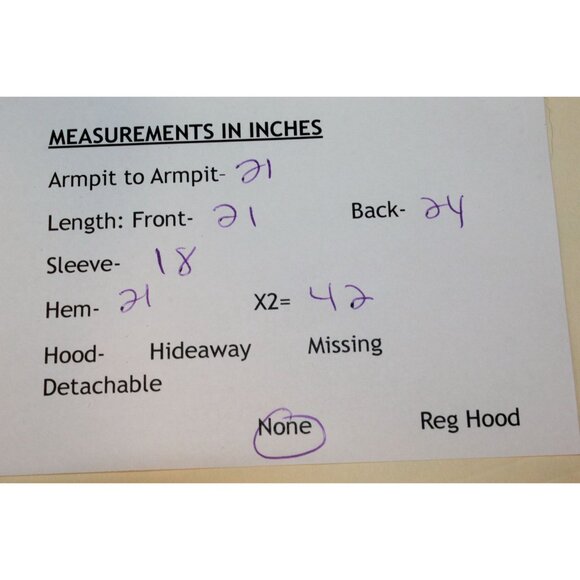 MEASUREMENTS IN INCHES
Armpit to Armpit- 21
Length: Front- 21 Back- 24
Sleeve- 18
Hem- 21 X2= 42
Hood- Hideaway Missing
Detachable
None Reg Hood